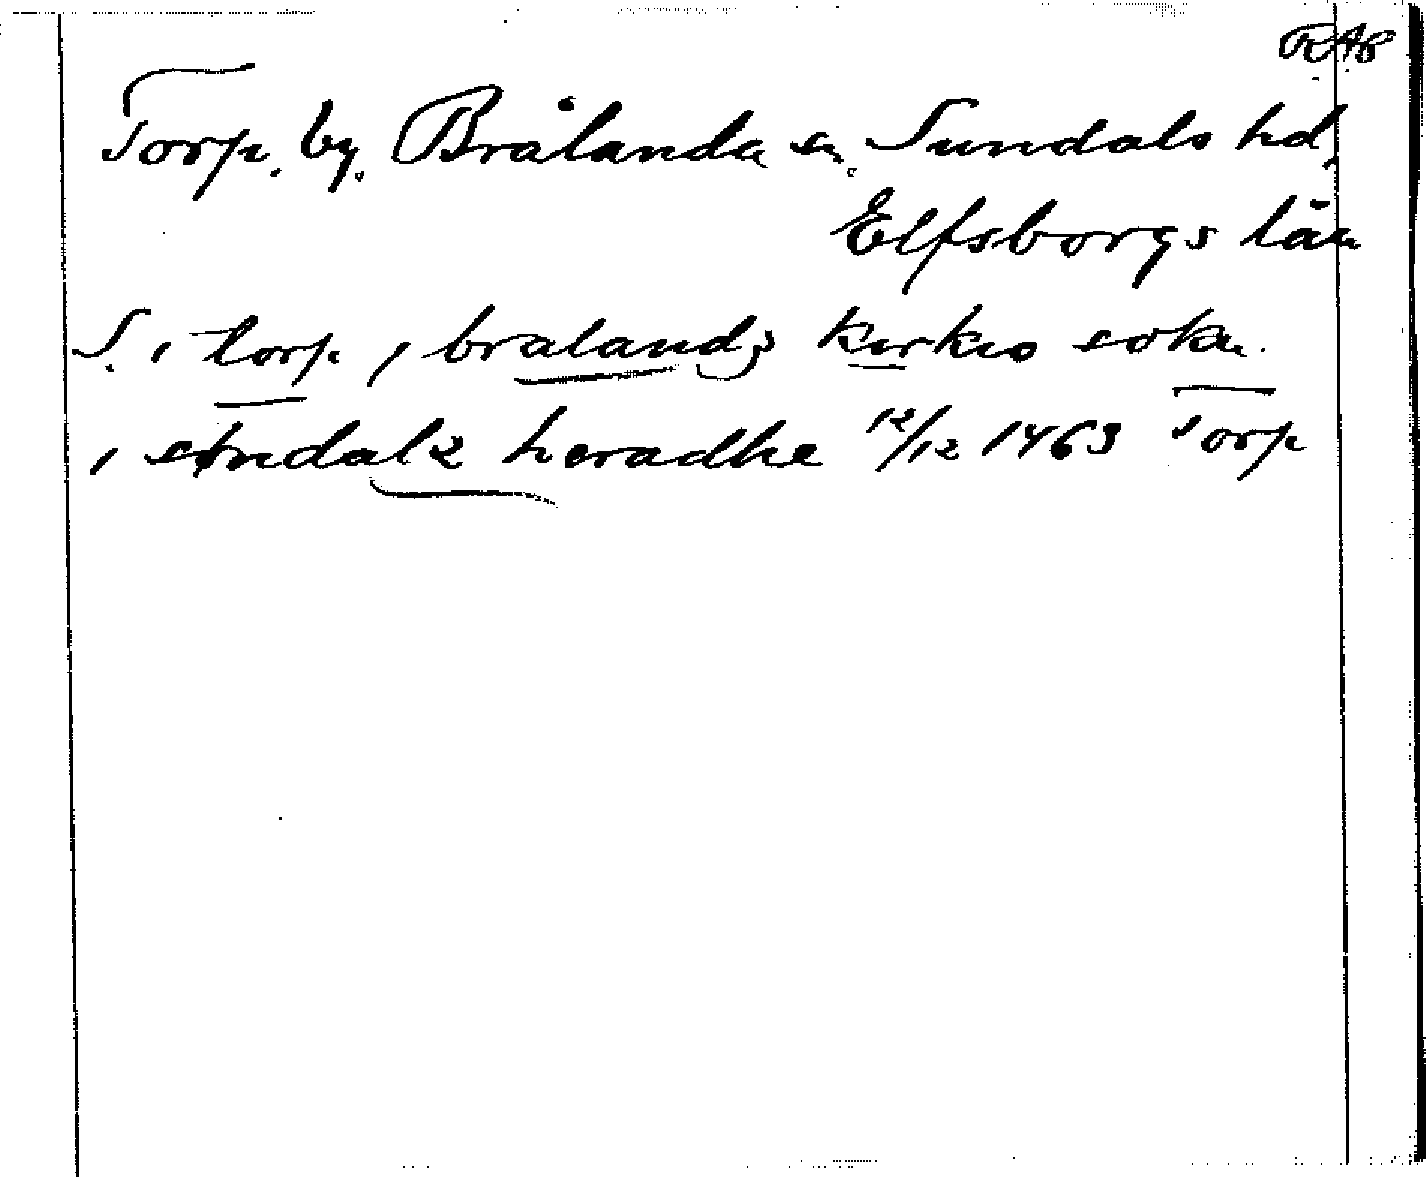 RAP
Torp. by. Brålanda sn. Sundals hd,
Elfsborgs län
S. i torp i braland; kirkio sokn
i sundalz heradhe 12/12 1463 Torp